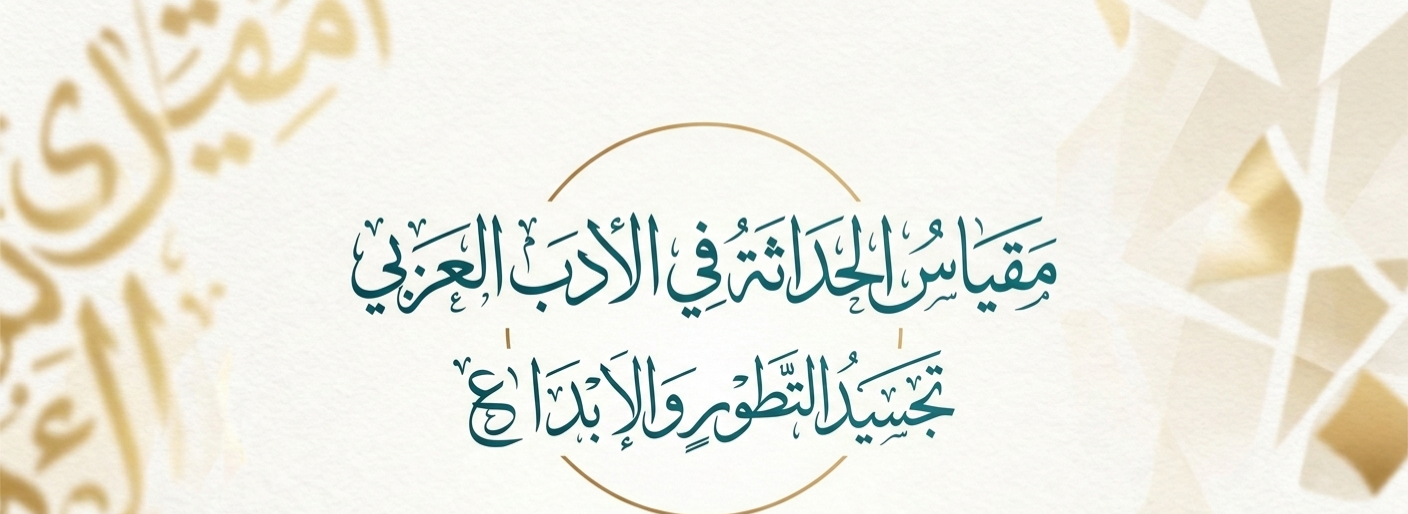 مَقيَاسُ الحَدَاثَةُ فِي الأدَب العَرَبي
تجَسيَدُ التَّطوْرٍ وَالإبْدَاع